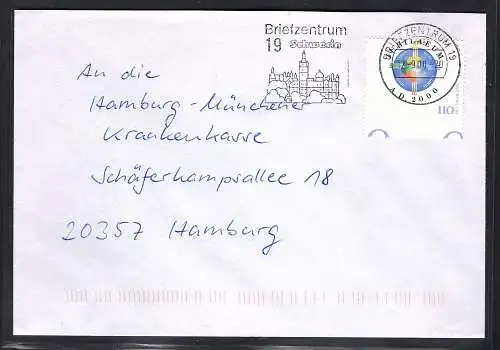 Briefzentrum
19 Schwerin
BRIEFZENTRUM 19
A.D. 2000
110
An die
Hamburg-Münchener
Krankenkasse
Schäferkampsallee 18
20357 Hamburg